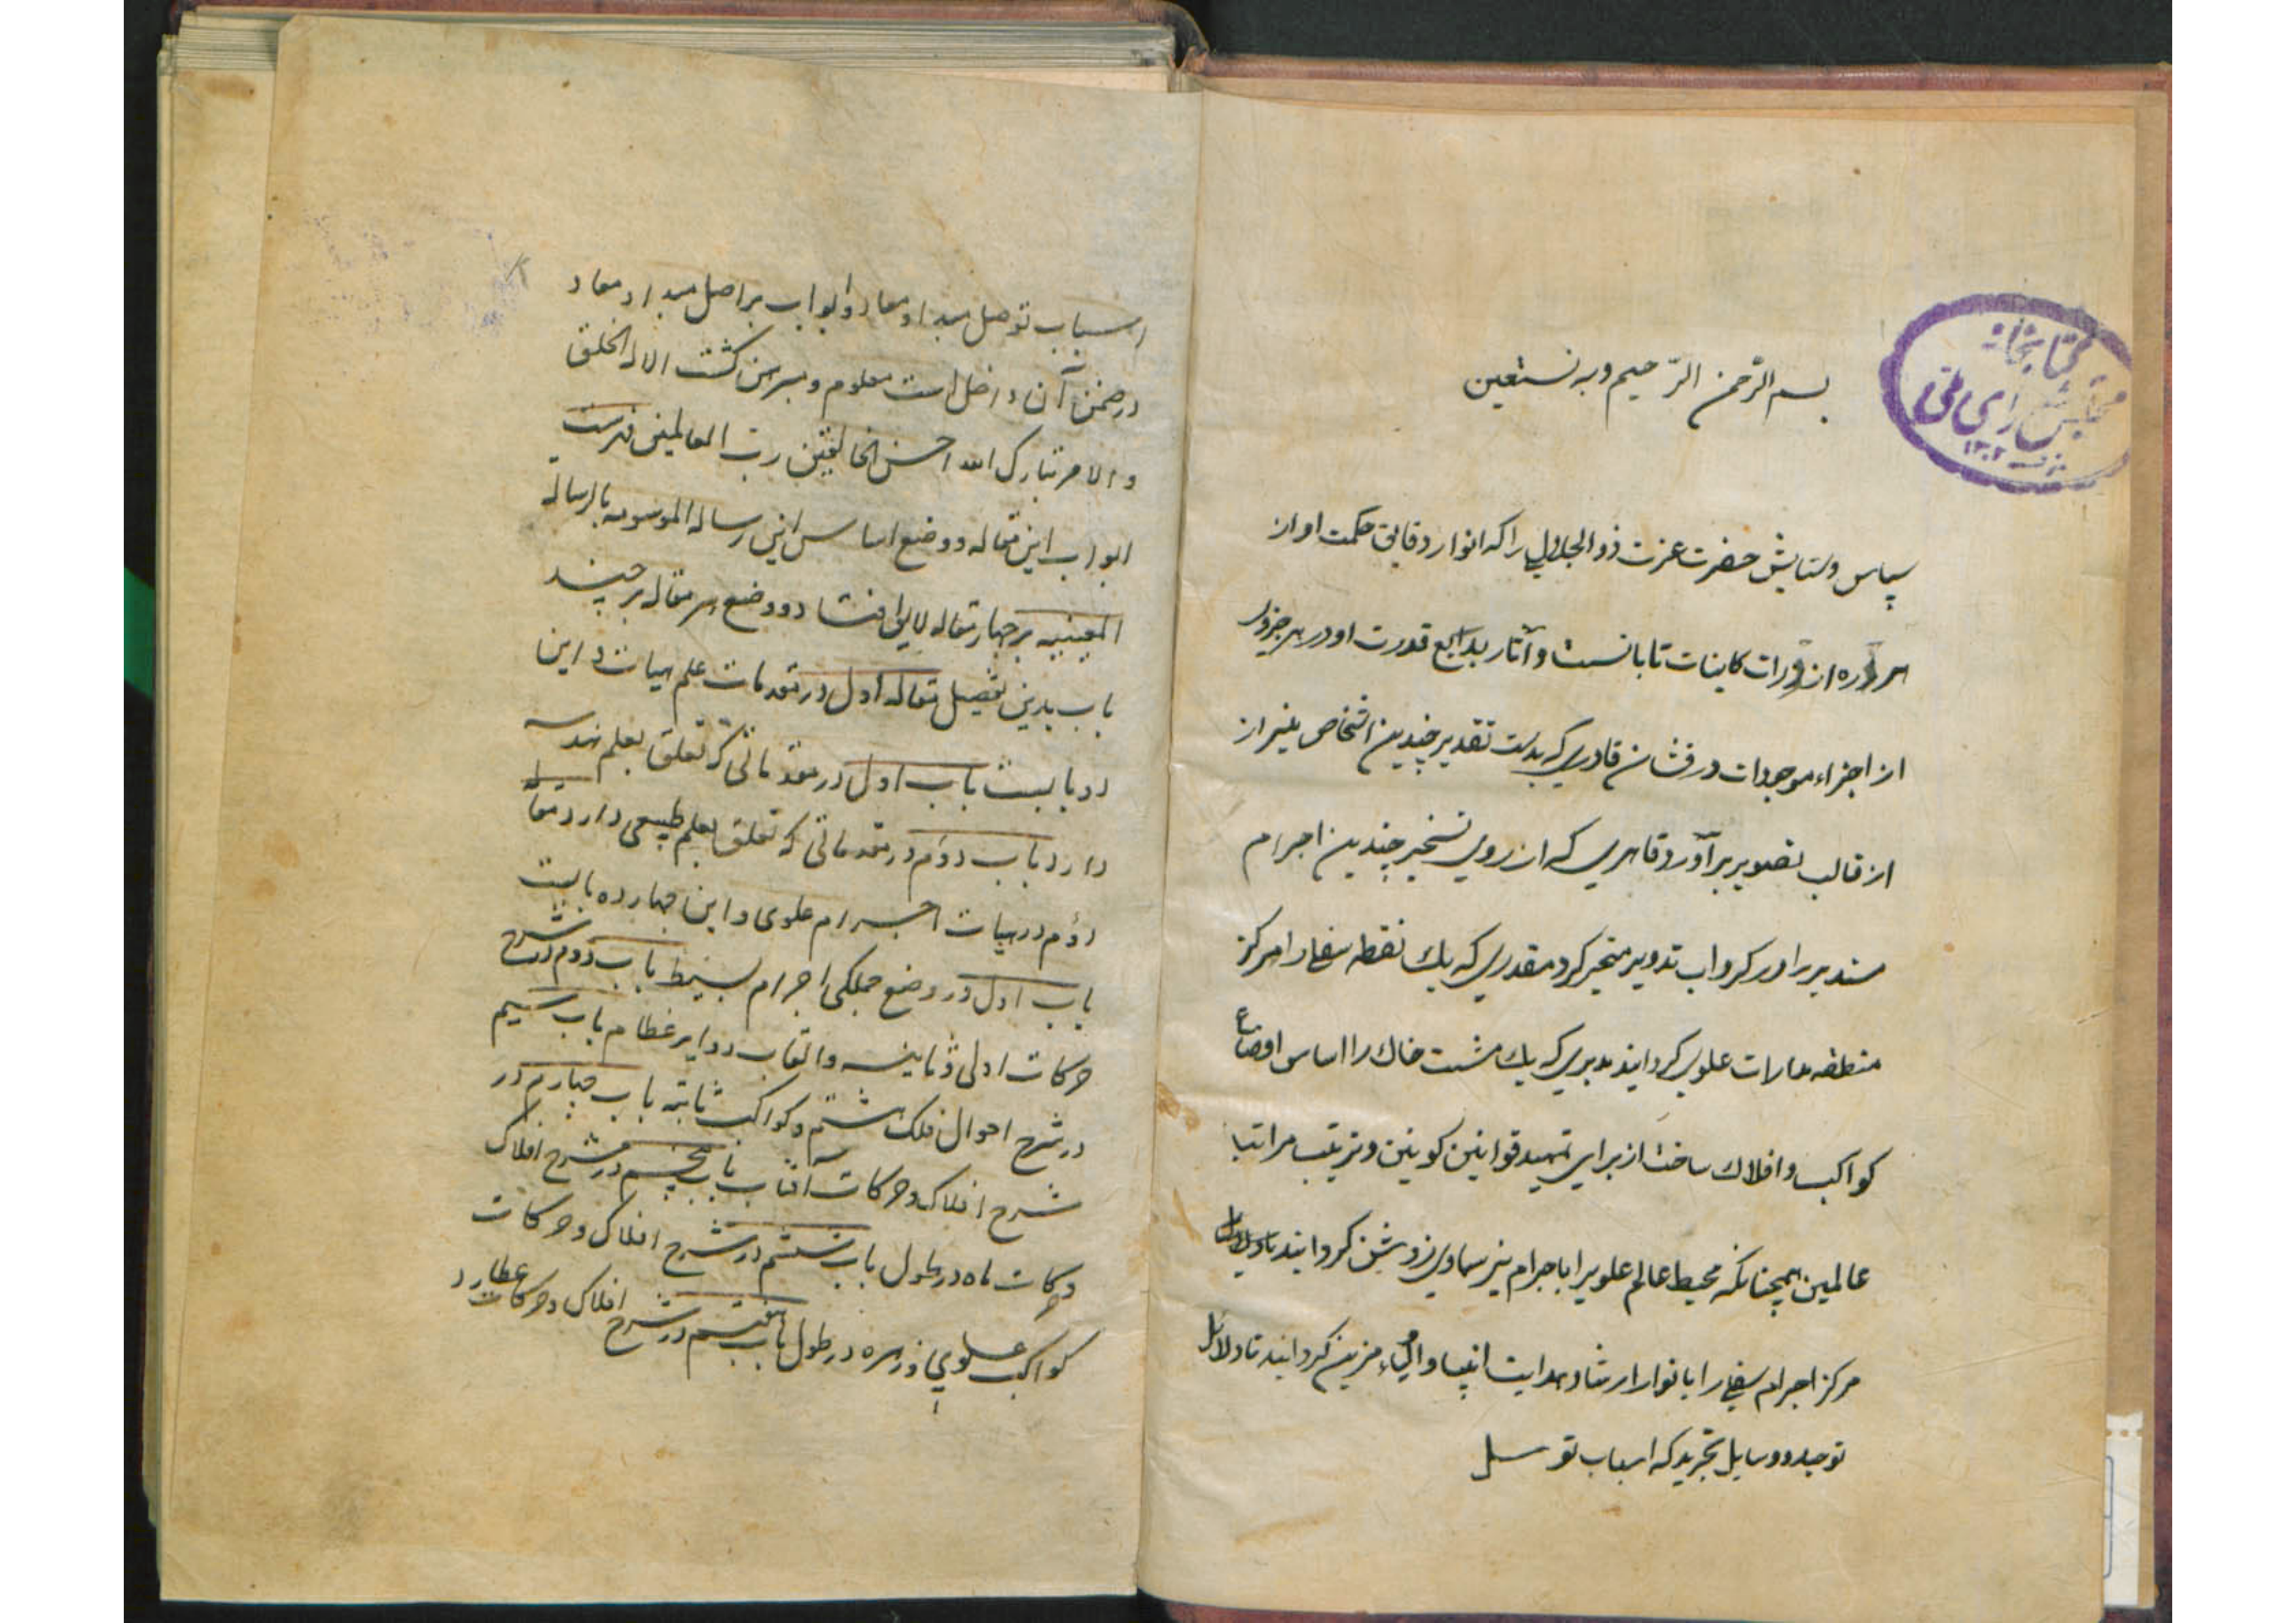 بسم الله الرحمن الرحیم وبه نستعین
کتابخانه
مجلس شورای ملی
سپاس وستایش حضرت عزت ذوالجلالی را که انوار دقایق حکمت او از
هر ذره از ذرات کاینات تابانست وآثار بدایع قدرت او در هر جزوی
از اجزاء موجودات درفشان قادری که بدست تقدیر چندین اشخاص بغیر از
از قالب تصویر برآورد قاهری که از روی تسخیر چندین اجرام
مستدیر را در کرداب تدویر متحیر کرد مقدری که یک نقطه سفلی را مرکز
منطقه مدارات علوی کردانید مدبری که یک مشت خاک را اساس اوضاع
کواکب وافلاک ساخت از برای تمهید قوانین کونین وترتیب مراتب
عالمین همچنانکه محیط عالم علوی را باجرام نیر سماوی روشن کردانید تا
مرکز اجرام سفلی را بانوار ارشاد وهدایت انبیا واولیاء مزین کردانید تا دلائل
توحید ووسایل تجرید که اسباب توسل
اسباب توصل مبدا ومعاد وابواب بر اصل مبدا ومعاد
در ضمن آن داخل است معلوم ومبرهن کشت الا له الخلق
والامر تبارک الله احسن الخالقین رب العالمین فهرست
ابواب این مقاله ووضع اساس این رساله الموسومه بالرساله
المعینیه بر چهار مقاله لایق افتاد ووضع هر مقاله بر چند
باب بدین تفصیل مقاله اول در مقدمات علم هیات واین
دو بابست باب اول در مقدماتی که تعلق بعلم هندسه
دارد باب دوم در مقدماتی که تعلق بعلم طبیعی دارد مقاله
دوم در هیات اجرام علوی واین چهارده بابست
باب اول در وضع جملکی اجرام بسیط باب دوم در شرح
حرکات اولی وثانیه والقاب دوایر عظام باب سیم
در شرح احوال فلک هشتم وکواکب ثابته باب چهارم در
شرح افلاک وحرکات آفتاب باب پنجم در شرح افلاک
وحرکات ماه در طول باب ششم در شرح افلاک وحرکات
کواکب علوی وزهره در طول باب هفتم در شرح افلاک وحرکات عطارد